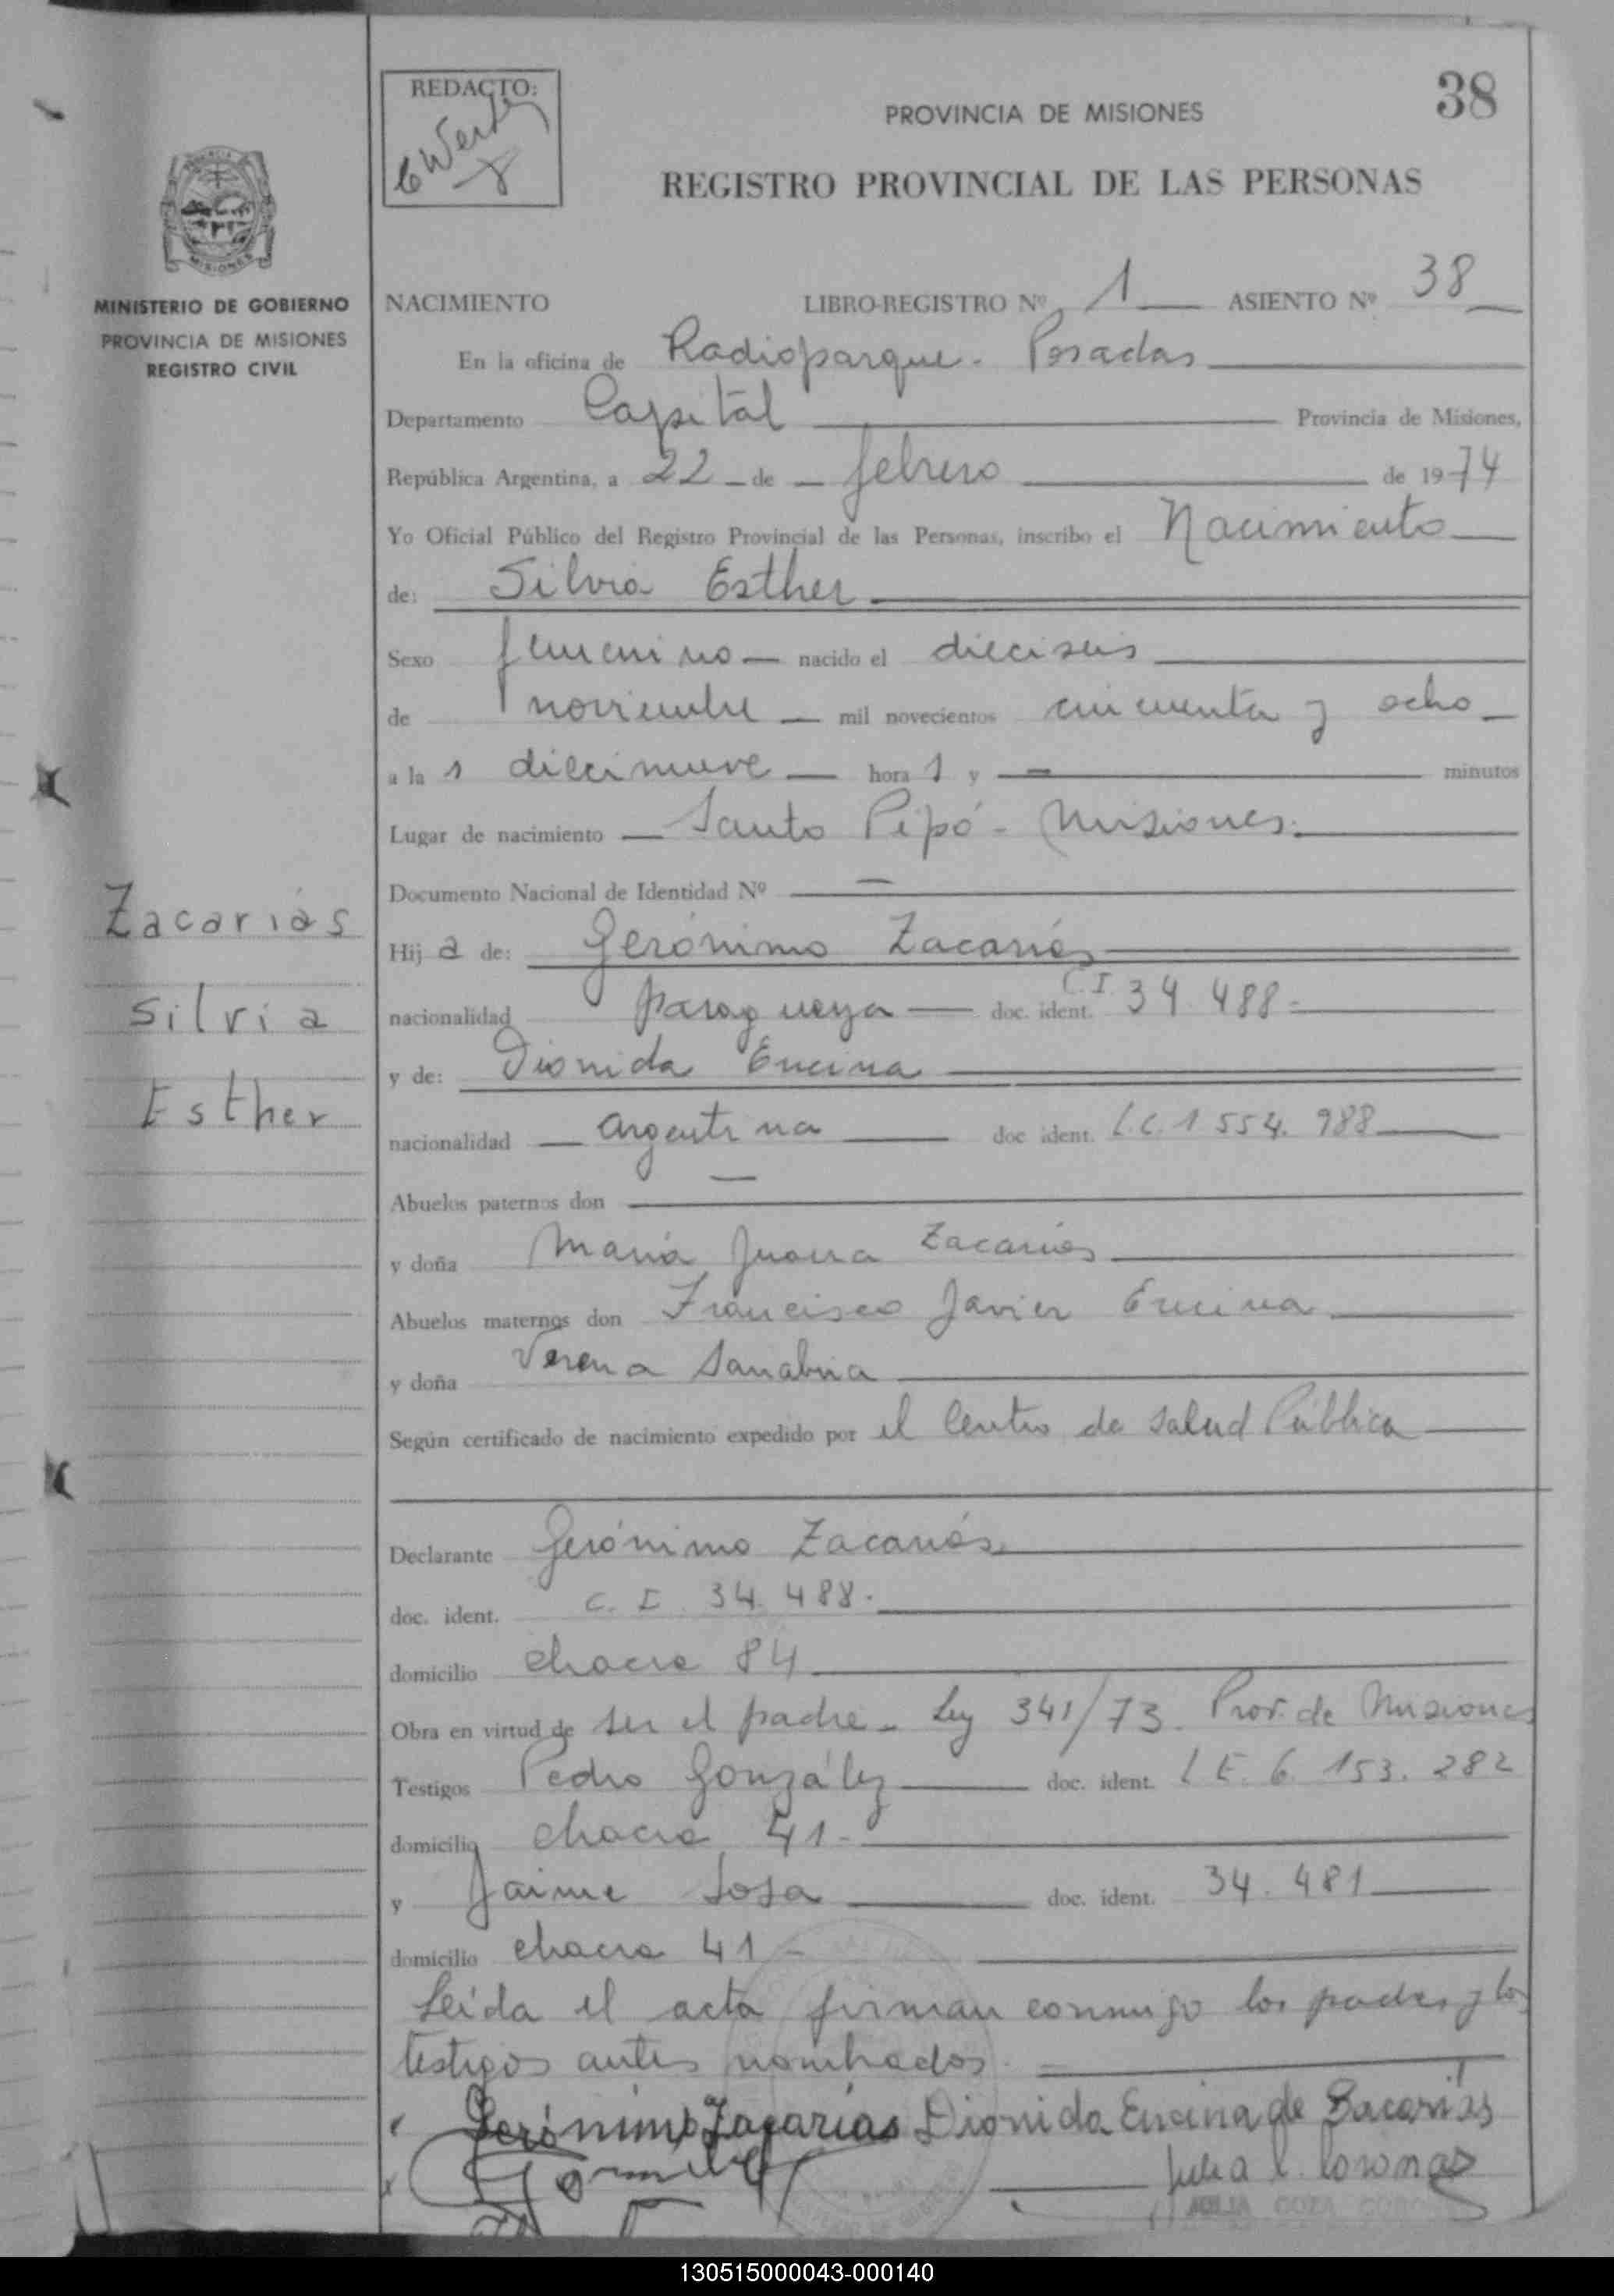 REDACTO:
PROVINCIA DE MISIONES
38
REGISTRO PROVINCIAL DE LAS PERSONAS
MISIONES
MINISTERIO DE GOBIERNO
PROVINCIA DE MISIONES
REGISTRO CIVIL
NACIMIENTO LIBRO-REGISTRO Nº 1 ASIENTO Nº 38
En la oficina de Radioparque - Posadas
Departamento Capital Provincia de Misiones,
República Argentina, a 22 de febrero de 1974
Yo Oficial Público del Registro Provincial de las Personas, inscribo el Nacimiento
de: Silvia Esther
Sexo femenino nacido el dieciseis
de noviembre mil novecientos cincuenta y ocho
a la s diecinueve hora s y — minutos
Lugar de nacimiento Santo Pipó - Misiones.
Documento Nacional de Identidad Nº —
Zacarías
Silvia
Esther
Hij a de: Gerónimo Zacarías
nacionalidad paraguaya doc. ident. C.I. 34.488
y de: Dionida Encina
nacionalidad argentina doc ident. L.C. 1.554.988
Abuelos paternos don —
y doña María Juana Zacarías
Abuelos maternos don Francisco Javier Encina
y doña Verena Sanabria
Según certificado de nacimiento expedido por el Centro de Salud Pública
Declarante Gerónimo Zacarías
doc. ident. C. I. 34.488.
domicilio chacra 84
Obra en virtud de ser el padre - Ley 341/73. Prov. de Misiones
Testigos Pedro González doc. ident. L E. 6.153.282
domicilio chacra 41-
y Jaime Sosa doc. ident. 34.481
domicilio chacra 41-
Leída el acta firman conmigo los padres y los
testigos antes nombrados.
Gerónimo Zacarías Dionida Encina de Sacarias
130515000043-000140